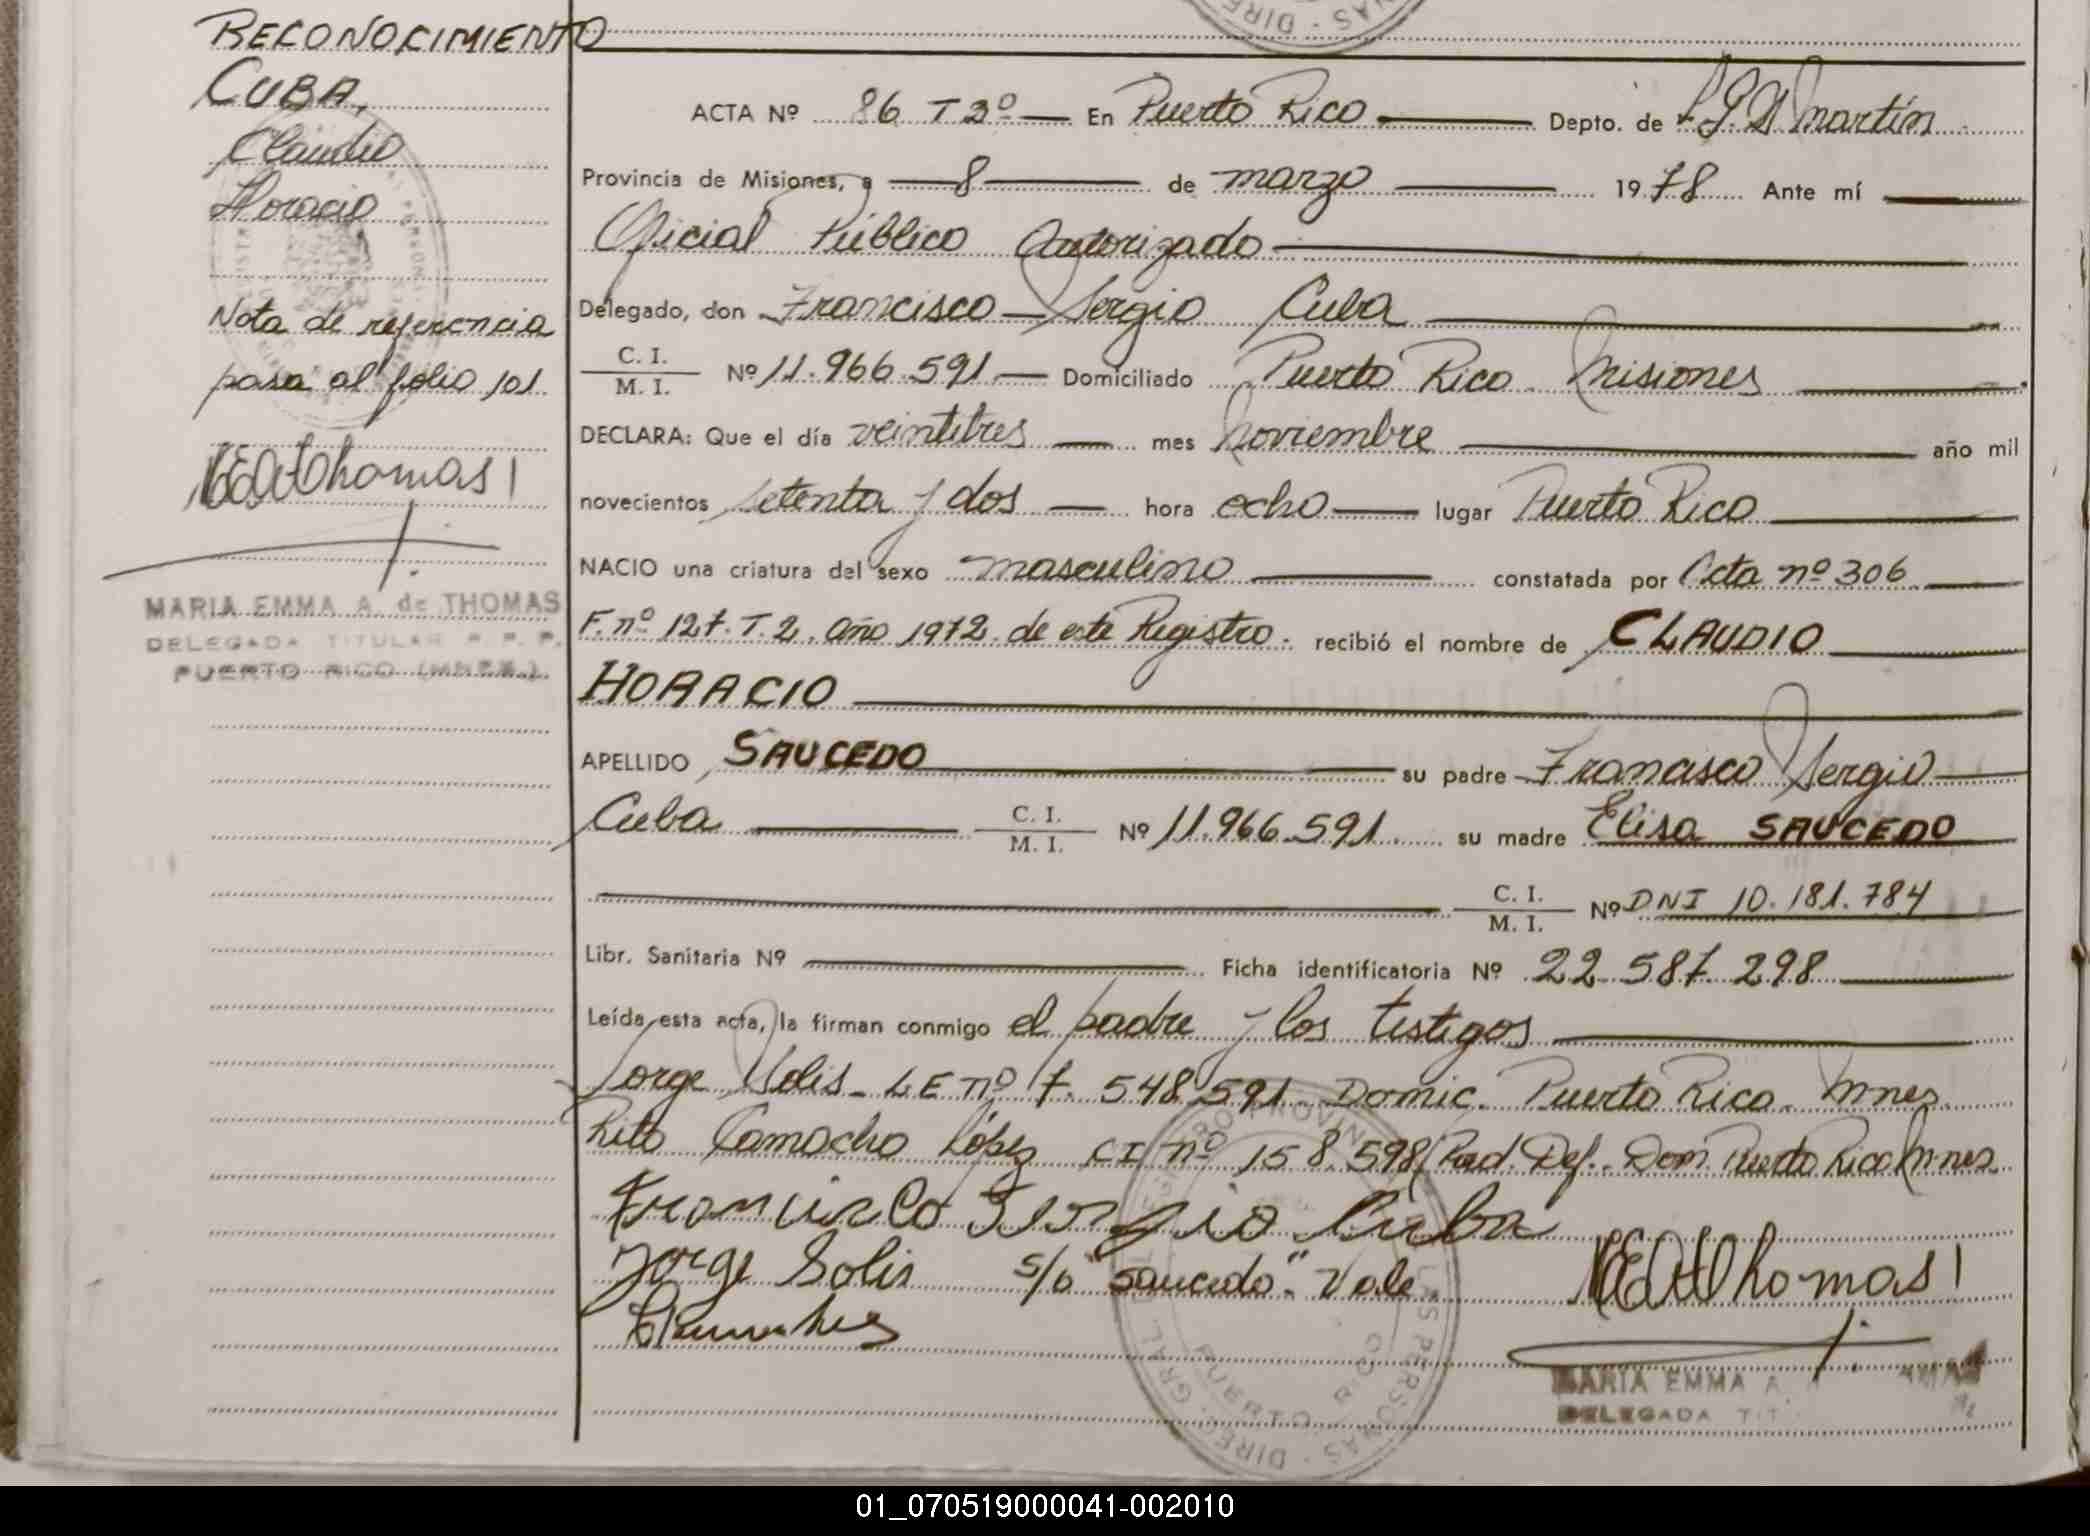 RECONOCIMIENTO
CUBA,
Claudio
Horacio
Nota de referencia
pasa al folio 101.
MEAdThomas
MARIA EMMA A. de THOMAS
DELEGADA TITULAR R. P. P.
PUERTO RICO (MNES.)
ACTA Nº 86 T 3º — En Puerto Rico — Depto. de L. G. S. Martín
Provincia de Misiones, a — 8 — de marzo — 1978 Ante mí —
Oficial Público Autorizado —
Delegado, don Francisco — Sergio Cuba —
C. I.
M. I. Nº 11.966.591 — Domiciliado Puerto Rico. Misiones —
DECLARA: Que el día veintitres — mes noviembre — año mil
novecientos setenta y dos — hora ocho — lugar Puerto Rico —
NACIO una criatura del sexo masculino — constatada por Acta nº 306 —
F. nº 127. T. 2. año 1972. de este Registro. recibió el nombre de CLAUDIO —
HORACIO —
APELLIDO SAUCEDO — su padre Francisco Sergio —
Cuba — C. I.
M. I. Nº 11.966.591 su madre Elisa SAUCEDO
— C. I.
M. I. Nº DNI 10.181.784
Libr. Sanitaria Nº — Ficha identificatoria Nº 22.587.298 —
Leída esta acta, la firman conmigo el padre y los testigos —
Jorge Solis - LE nº 7.548.591 - Domic. Puerto Rico. Mnes.
Rito Camacho López CI nº 158.598 Rad. Def. Dom Puerto Rico Mnes.
Francisco Sergio Cuba
Jorge Solis s/o "Saucedo". Vale.
MEAdThomas
MARIA EMMA A
DELEGADA TIT
PUERTO RICO
01_070519000041-002010